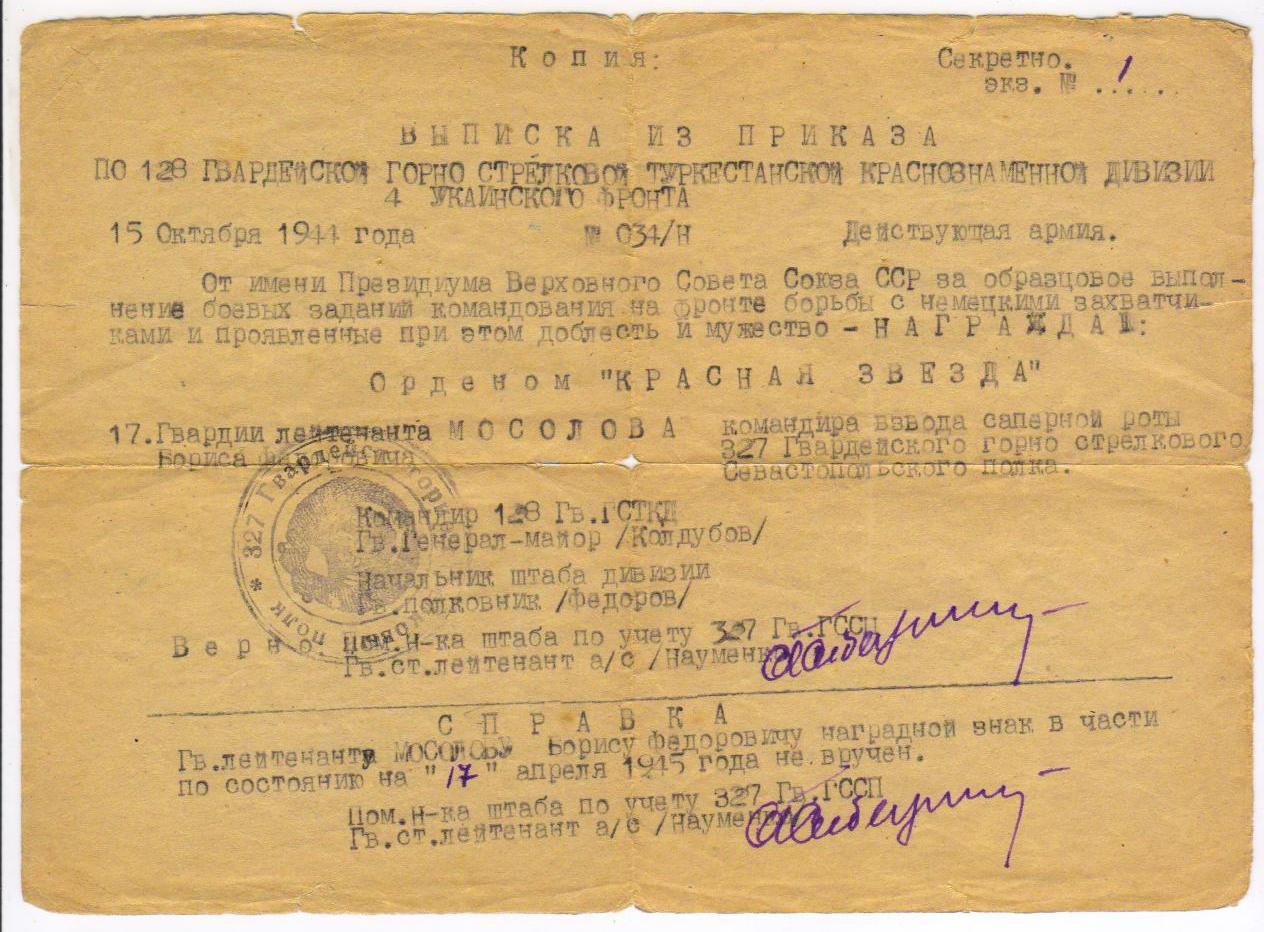 Копия:
Секретно.
экз. № 1.....
ВЫПИСКА ИЗ ПРИКАЗА
ПО 128 ГВАРДЕЙСКОЙ ГОРНО СТРЕЛКОВОЙ ТУРКЕСТАНСКОЙ КРАСНОЗНАМЕННОЙ ДИВИЗИИ
4 УКАИНСКОГО ФРОНТА
15 Октября 1944 года № 034/Н Действующая армия.
От имени Президиума Верховного Совета Союза ССР за образцовое выпол-
нение боевых заданий командования на фронте борьбы с немецкими захватчи-
ками и проявленные при этом доблесть и мужество - НАГРАЖДАЮ:
Орденом "КРАСНАЯ ЗВЕЗДА"
17. Гвардии лейтенанта МОСОЛОВА командира взвода саперной роты
Бориса Федоровича 327 Гвардейского горно стрелкового
Севастопольского полка.
Командир 128 Гв.ГСТКД
Гв.Генерал-майор /Колдубов/
Начальник штаба дивизии
Гв.полковник /Федоров/
Верно: Пом.Н-ка штаба по учету 327 Гв.ГССП
Гв.ст.лейтенант а/с /Науменко
СПРАВКА
Гв.лейтенанту МОСОЛОВУ Борису Федоровичу наградной знак в части
по состоянию на "17" апреля 1945 года не вручен.
Пом.Н-ка штаба по учету 327 Гв.ГССП
Гв.ст.лейтенант а/с /Науменко
* 327 Гвардейский полк